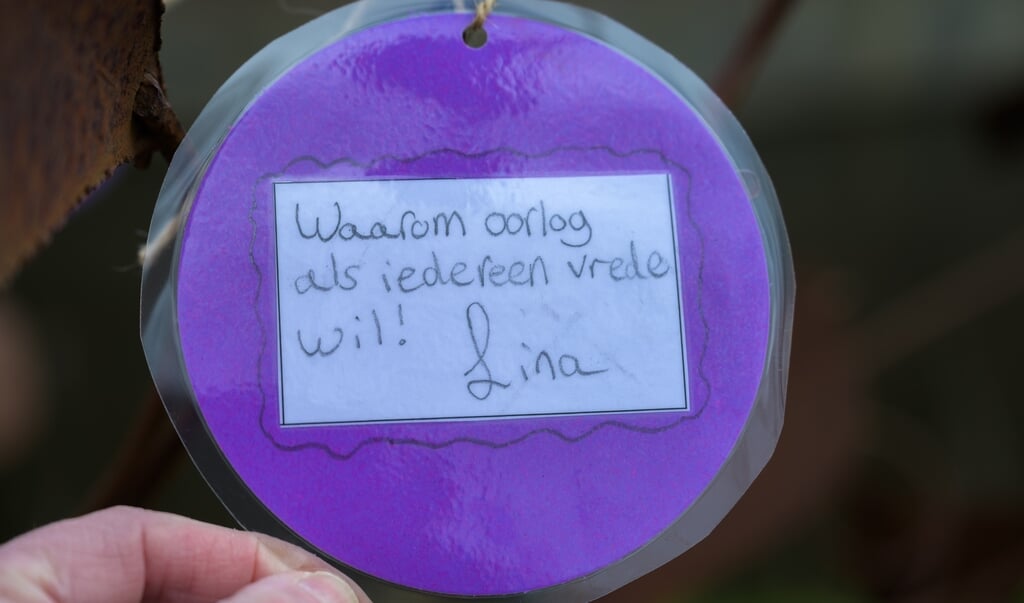 Waarom oorlog
als iedereen vrede
wil! Lina